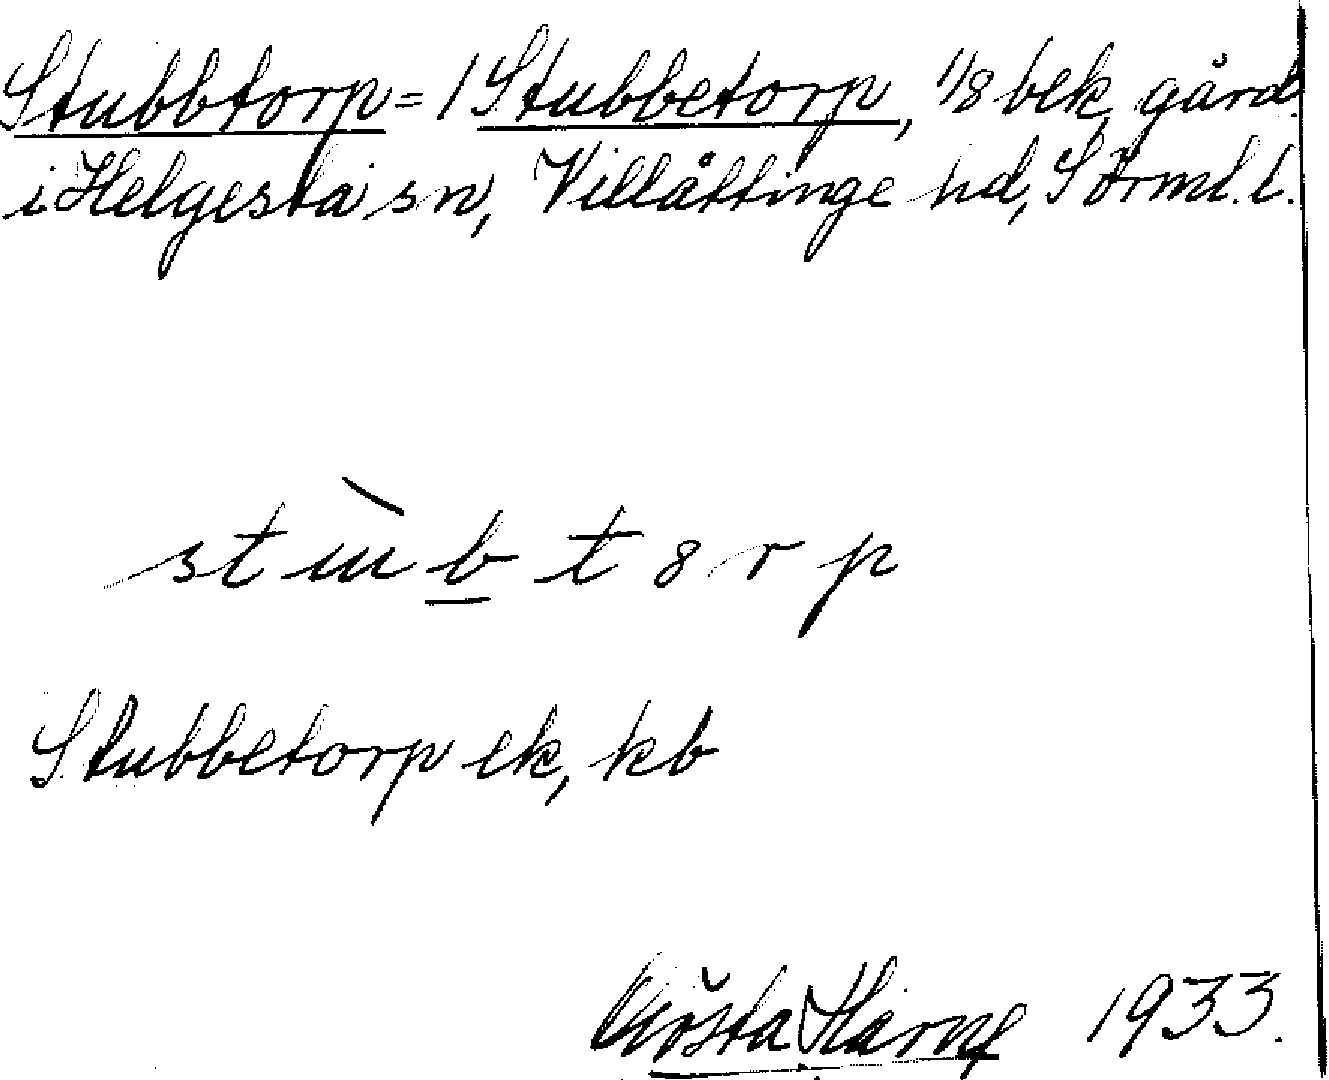 Stubbtorp = 1 Stubbetorp, 1/8 bek. gård.
i Helgesta sn, Villåttinge hd, Sörml. l.
stùb t 8 r p
Stubbetorp ek, kb
Gösta Härne 1933.